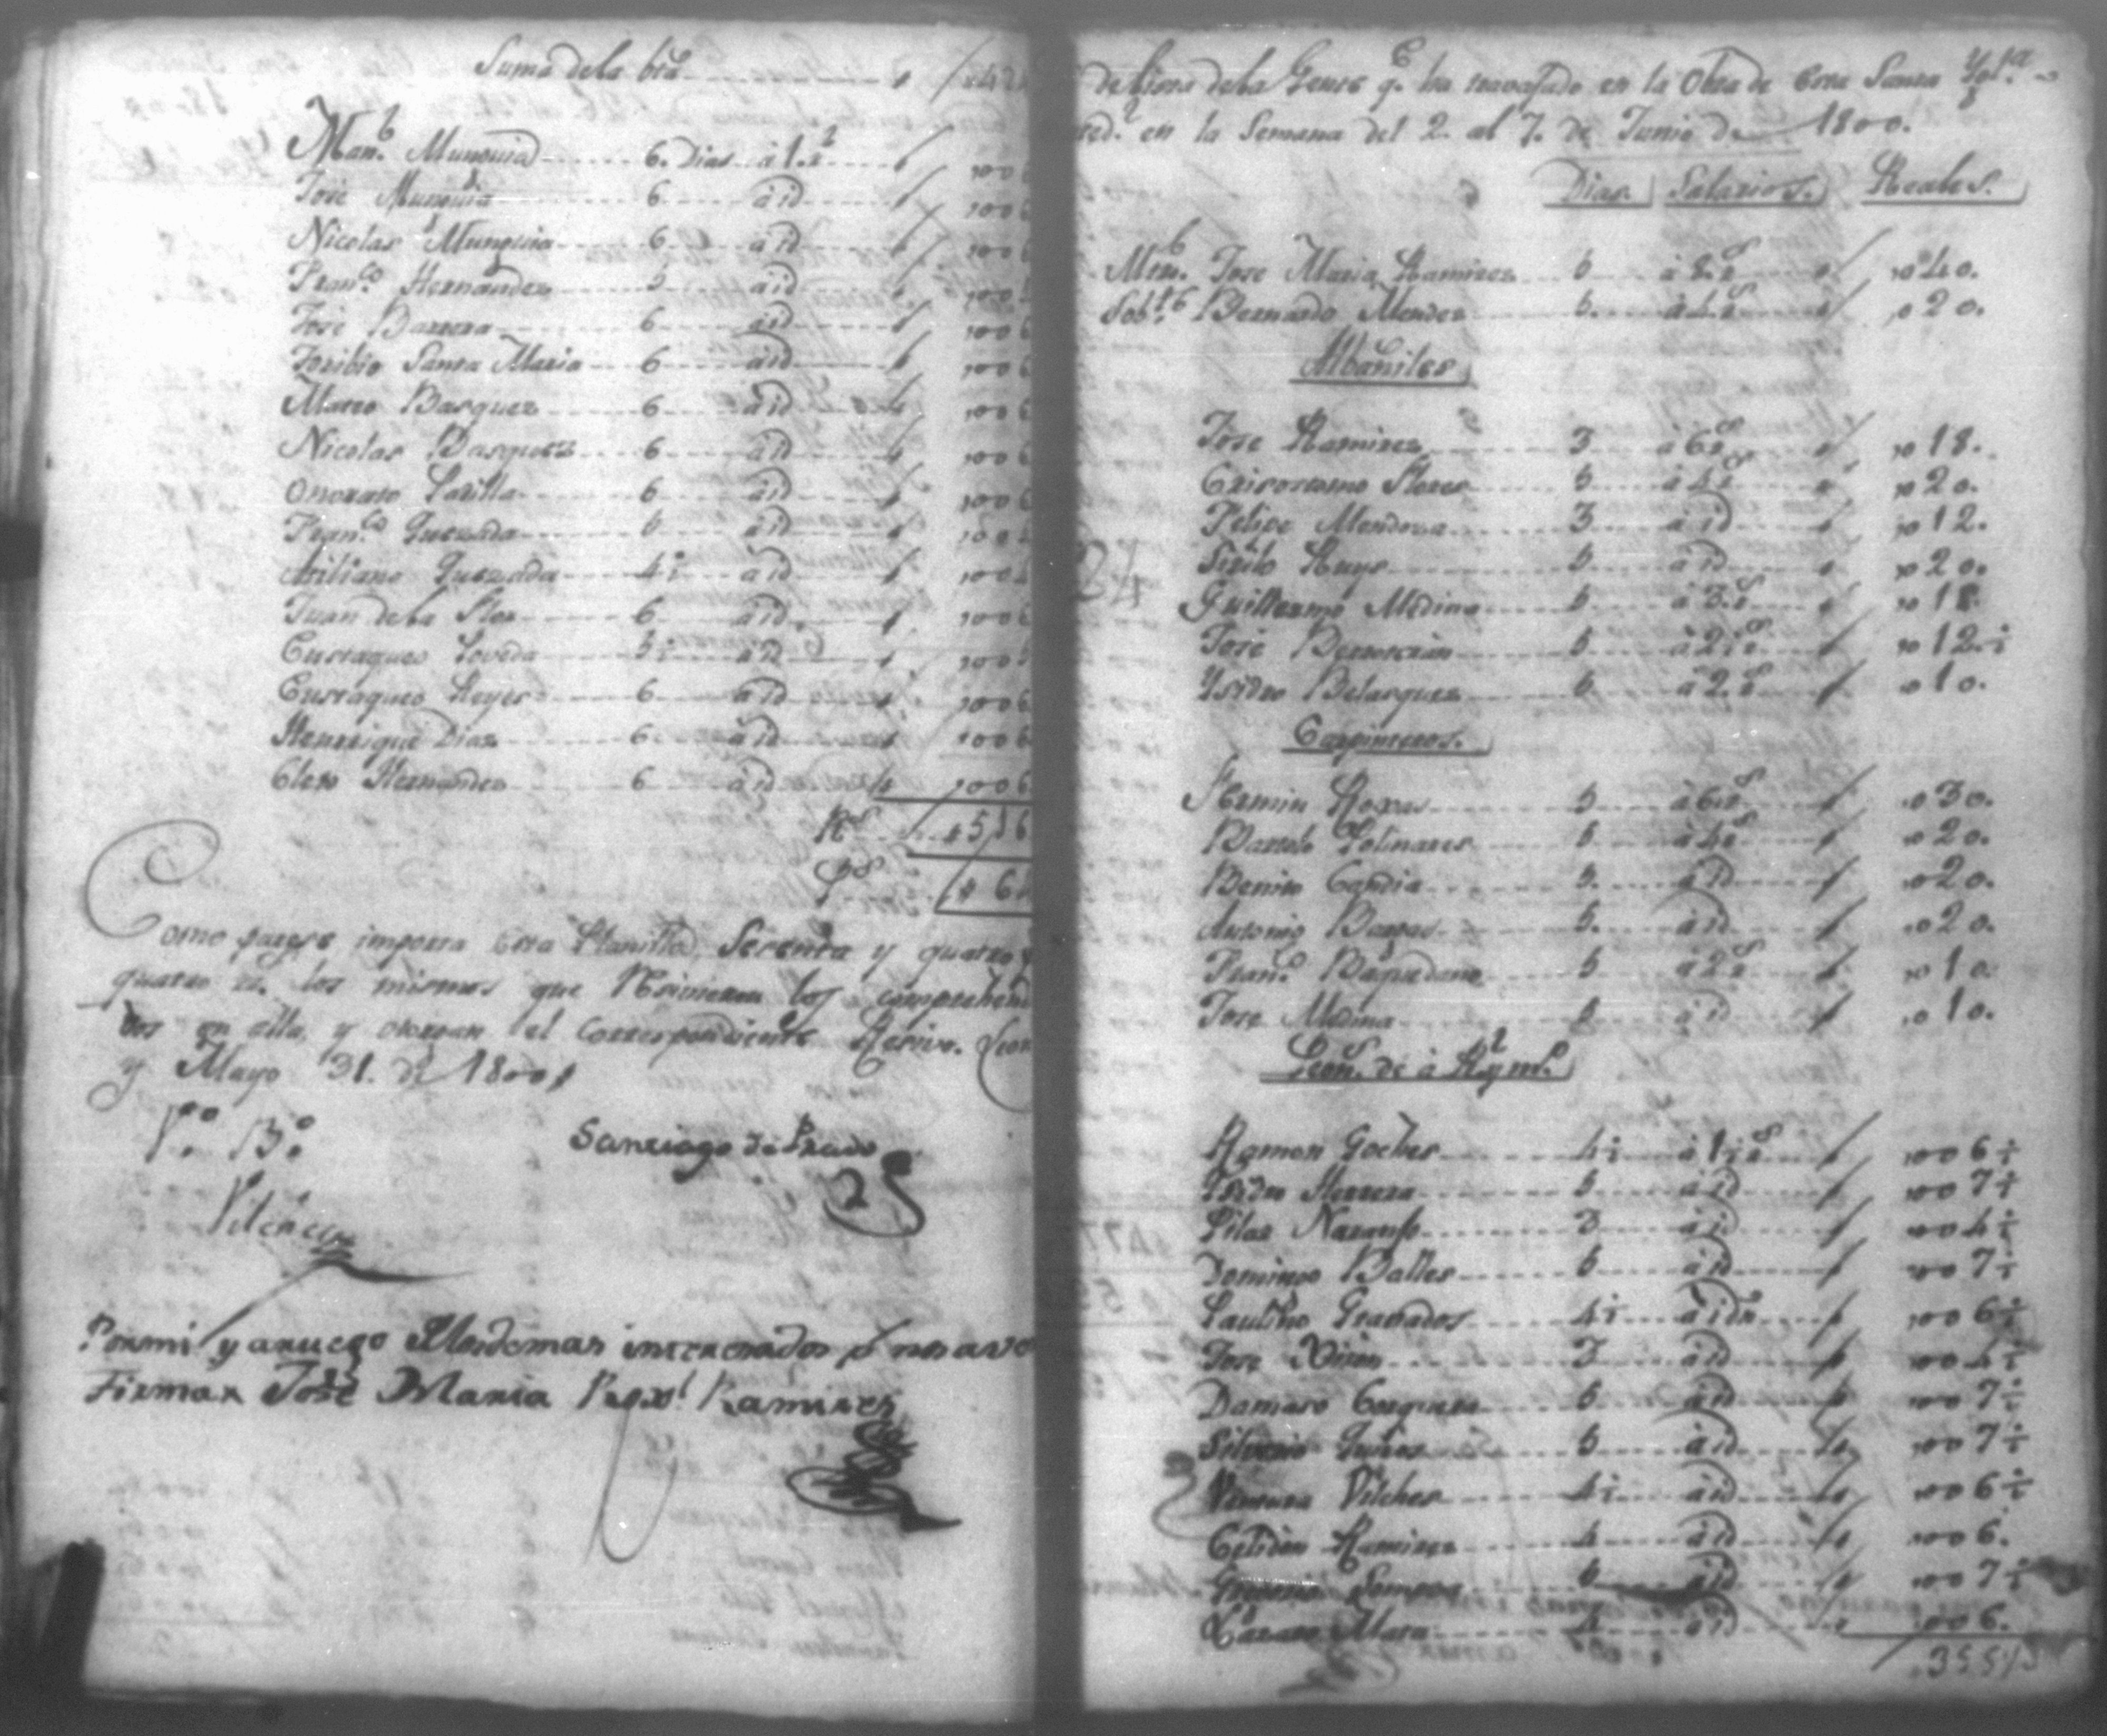 Suma de la bta 424
Man.l Munguia 6. Dias à 1. rl 006
José Munguia 6 à id 006
Nicolas Munguia 6 à id 006
Fran.co Hernandez 5 à id 00
José Barrera 6 à id 006
Toribio Santa Maria 6 à id 006
Mateo Basques 6 à id 006
Nicolas Basques 6 à id 006
Onorato Padilla 6 à id 006
Fran.co Quezada 6 à id 00
Quezada 4½ à id 00
Juan de la Flor 6 à id 006
Eustaqueo 5½ à id 00
Eustaqueo Reyes 6 à id 006
Henrrique Dias 6 à id 006
Cleto Hernandes 6 à id 006
R.s 516
P.s 6
Como parese importa esta Planilla Sesenta y quatro
quatro rs. los mismos que Resivieron los comprehendi
dos en ella, y otorgan el Correspondiente Resivo. Leon
y Mayo 31. de 1800
V.o B.o
Santiago de Prado
Por mi y a ruego de los demas interesados q no saven
Firmar José Maria Ramires
de Lista de la Gente q.e ha travajado en la Obra de esta Santa Ygl.a
en la Semana del 2. al 7. de Junio de 1800.
Dias Salarios. Reales.
Mtro. Jose Maria Ramires 5 à 8 rs 040.
Sob.te Bernardo Mendes 5. à 4 rs 020.
Albañiles
Jose Ramires 3 à 6 rs 018.
Crisostomo Flores 5 à 4 rs 020.
Felipe Mendosa 3 à id 012.
Sirilo Ruys 5 à id 020.
Guillermo Medina 6 à 3 rs 018.
José 5 à 2½ rs 012.½
Ysidro Belasques 5 à 2 rs 010.
Carpinteros.
Fermin Roxas 5 à 6 rs 030.
Bartolo Polinares 5 à 4 rs 020.
Benito Candia 5. à id 020.
Antonio Barros 5. à id 020.
Fran.co Baquedano 5 à 2 rs 010.
Jose Medina 5 à id 010.
Peon.s de à R.l y m.o
Ramon Goches 4½ à 1½ rs 006½
Ysidro Herrera 5 à id 007½
Pilar Naranjo 3 à id 004½
Domingo Balles 5 à id 007½
Paulino Granados 4½ à id 006½
Jose 3 à id 004½
Damaso 5 à id 007½
Silverio 5 à id 007½
Ventura Vilches 4½ à id 006½
Celidon Ramires 4 à id 006.
5 à id 007½
Lázaro Mara 4 à id 006.
355½